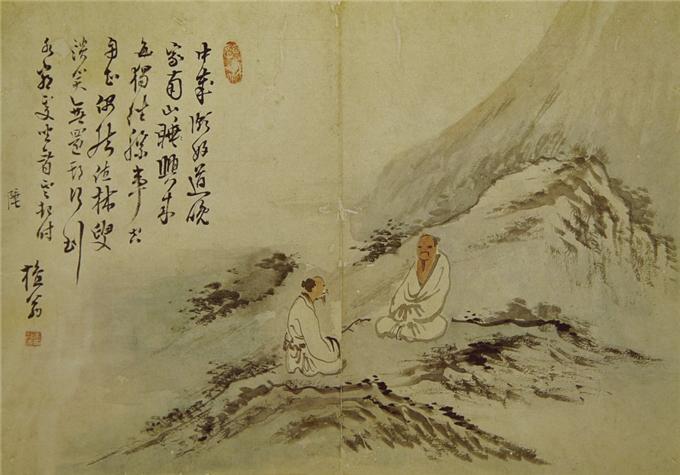 中歲頗好道晚
家南山睡興來
每獨往勝事空
自知偶然值林叟
談笑無還期行到
水窮處坐看雲起時
陲
檀翁